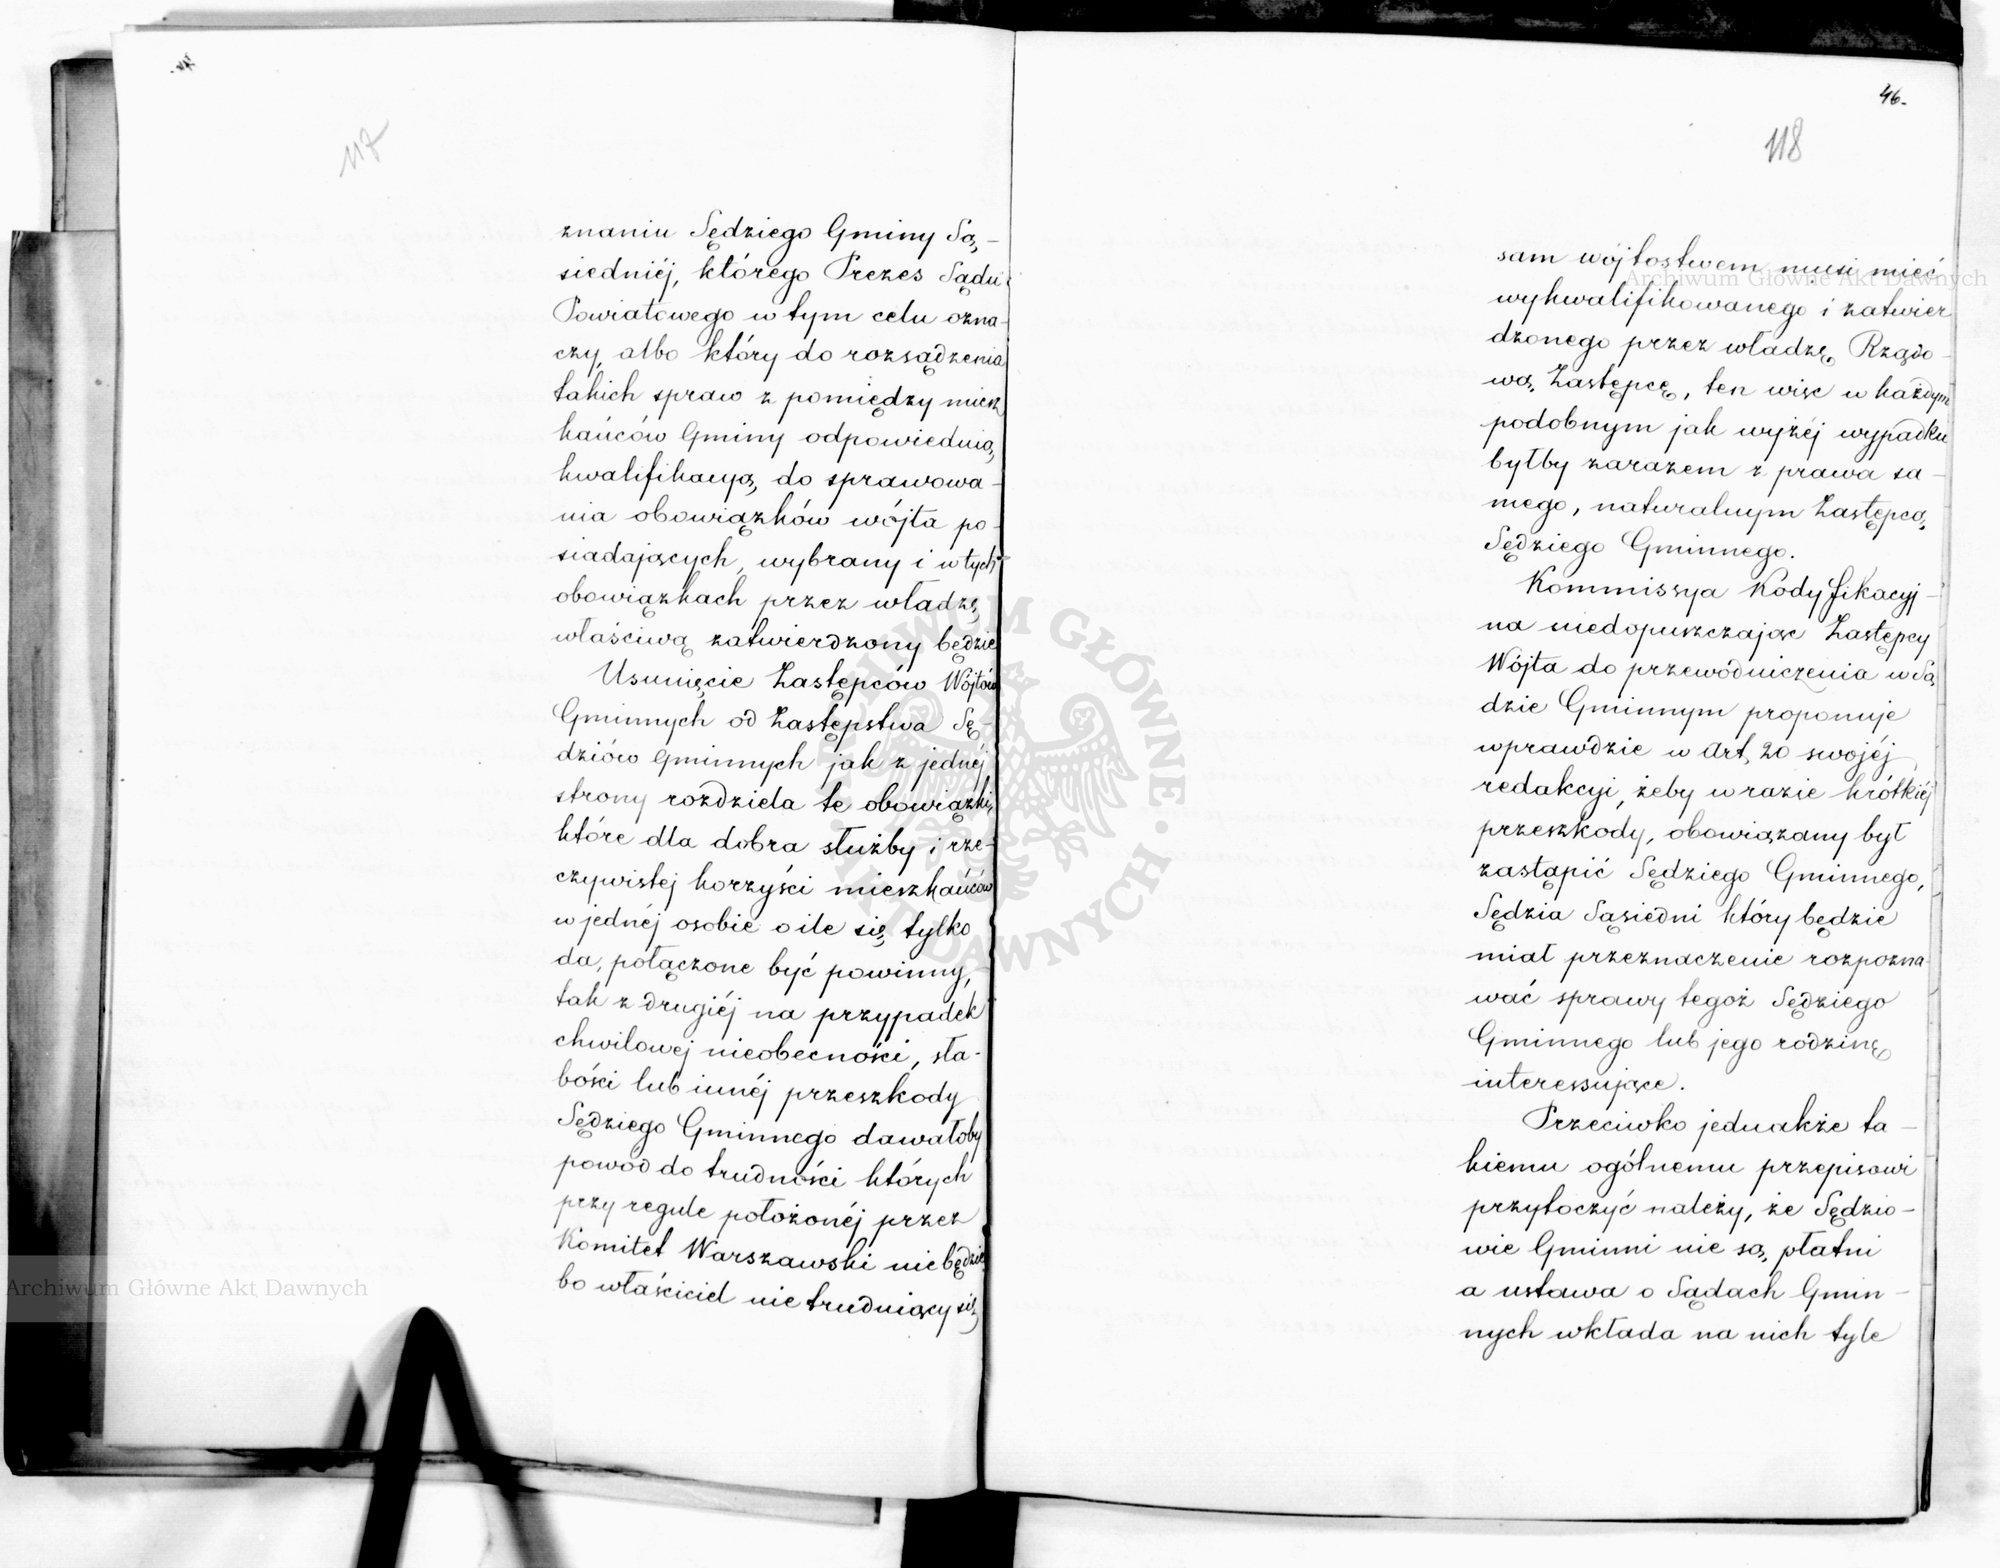 117
znaniu Sędziego Gminy Są-
siedniéj, którego Prezes Sądu
Powiatowego w tym celu ozna-
czy, albo który do rozsądzenia
takich spraw z pomiędzy miesz
kańców Gminy odpowiednią
kwalifikacyą do sprawowa-
nia obowiązków wójta po-
siadających, wybrany i w tych
obowiązkach przez władzę
właściwą zatwierdzony będzie
Usunięcie Zastępców Wójtów
Gminnych od Zastępstwa Sę-
dziów Gminnych jak z jednéj
strony rozdziela te obowiązki,
które dla dobra służby i rze-
czywistej korzyści mieszkańców
w jednéj osobie o ile się tylko
da, połączone być powinny,
tak z drugiéj na przypadek
chwilowej nieobecności, sła-
bości lub innéj przeszkody
Sędziego Gminnego dawałoby
powód do trudności których
przy regule położonéj przez
Komitet Warszawski nie będzie
bo właściciel nie trudniący się
46.
118
sam wójtostwem musi mieć
wykwalifikowanego i zatwier
dzonego przez władzę Rządo-
wą Zastępcę, ten więc w każdym
podobnym jak wyżéj wypadku
byłby zarazem z prawa sa-
mego, naturalnym Zastępcą
Sędziego Gminnego.
Kommissya Kodyfikacyj-
na niedopuszczając Zastępcy
Wójta do przewodniczenia w Są
dzie Gminnym proponuje
wprawdzie w Art, 20 swojéj
redakcyi, żeby w razie krótkiéj
przeszkody, obowiązany był
zastąpić Sędziego Gminnego,
Sędzia Sąsiedni który będzie
miał przeznaczenie rozpozna-
wać sprawy tegoż Sędziego
Gminnego lub jego rodzinę
interessujące.
Przeciwko jednakże ta-
kiemu ogólnemu przepisowi
przytoczyć należy, że Sędzio-
wie Gminni nie są płatni
a ustawa o Sądach Gmin-
nych wkłada na nich tyle
Archiwum Główne Akt Dawnych
Archiwum Główne Akt Dawnych
ARCHIWUM GŁÓWNE AKT DAWNYCH